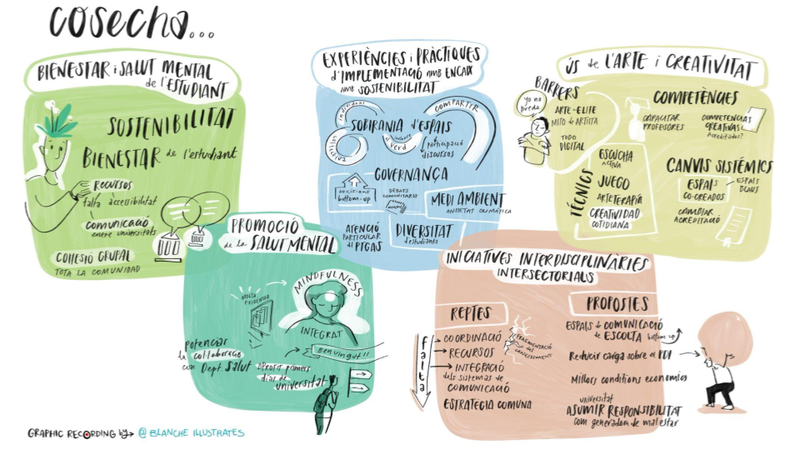 cosecha...
BIENESTAR i SALUT MENTAL
de l'ESTUDIANT
SOSTENIBILITAT
BIENESTAR de l'estudiant
RECURSOS
falta accessibilitat
COMUNICACIÓ
entre universitats
COHESIÓ GRUPAL
TOTA LA COMUNIDAD
PROMOCIÓ
de la SALUT MENTAL
MINDFULNESS
INTEGRAT
Benvingut!!
Potenciar
la col·laboració
con Dept. Salut
primers
dias de
universitat
EXPERIÈNCIES i PRÀCTIQUES
d'IMPLEMENTACIÓ amb ENCAIX
amb SOSTENIBILITAT
COMPARTIR
SOBIRANIA d'ESPAIS
verd
participació
discursos
GOVERNANÇA
decisions
bottom-up
DEBATS
MEDI AMBIENT
ANSIETAT CLIMÀTICA
ATENCIÓ
PARTICULAR
al PTGAS
DIVERSITAT
d'estudiants
ÚS de L'ARTE i CREATIVITAT
BARRERS
Yo no puedo
ARTE=ELITE
MITO de ARTISTA
TODO
DIGITAL
TÉCNICS
ESCUCHA
ACTIVA
JUEGO
ARTETERAPIA
CREATIVIDAD
COTIDIANA
COMPETÈNCIES
CAPACITAR
PROFESORES
COMPETENCIAS
CREATIVAS
Acreditadas?
CANVIS SISTÉMICS
ESPAIS
CO-CREADOS
ESPAIS
BLAUS
CAMBIAR
ACREDITACIÓ
INICIATIVES INTERDISCIPLINÀRIES
INTERSECTORIALS
REPTES
falta
COORDINACIÓ
RECURSOS
INTEGRACIÓ
dels sistemas de
COMUNICACIÓ
ESTRATEGIA COMUNA
FRAGMENTACIÓ
del
PROPOSTES
ESPAIS de COMUNICACIÓ
de ESCOLTA bottom up
Reducir carga sobre el PDI
Millors conditions economics
universitat
ASUMIR RESPONSIBILITAT
com generadora de malestar
GRAPHIC RECORDING by → @ BLANCHE ILLUSTRATES